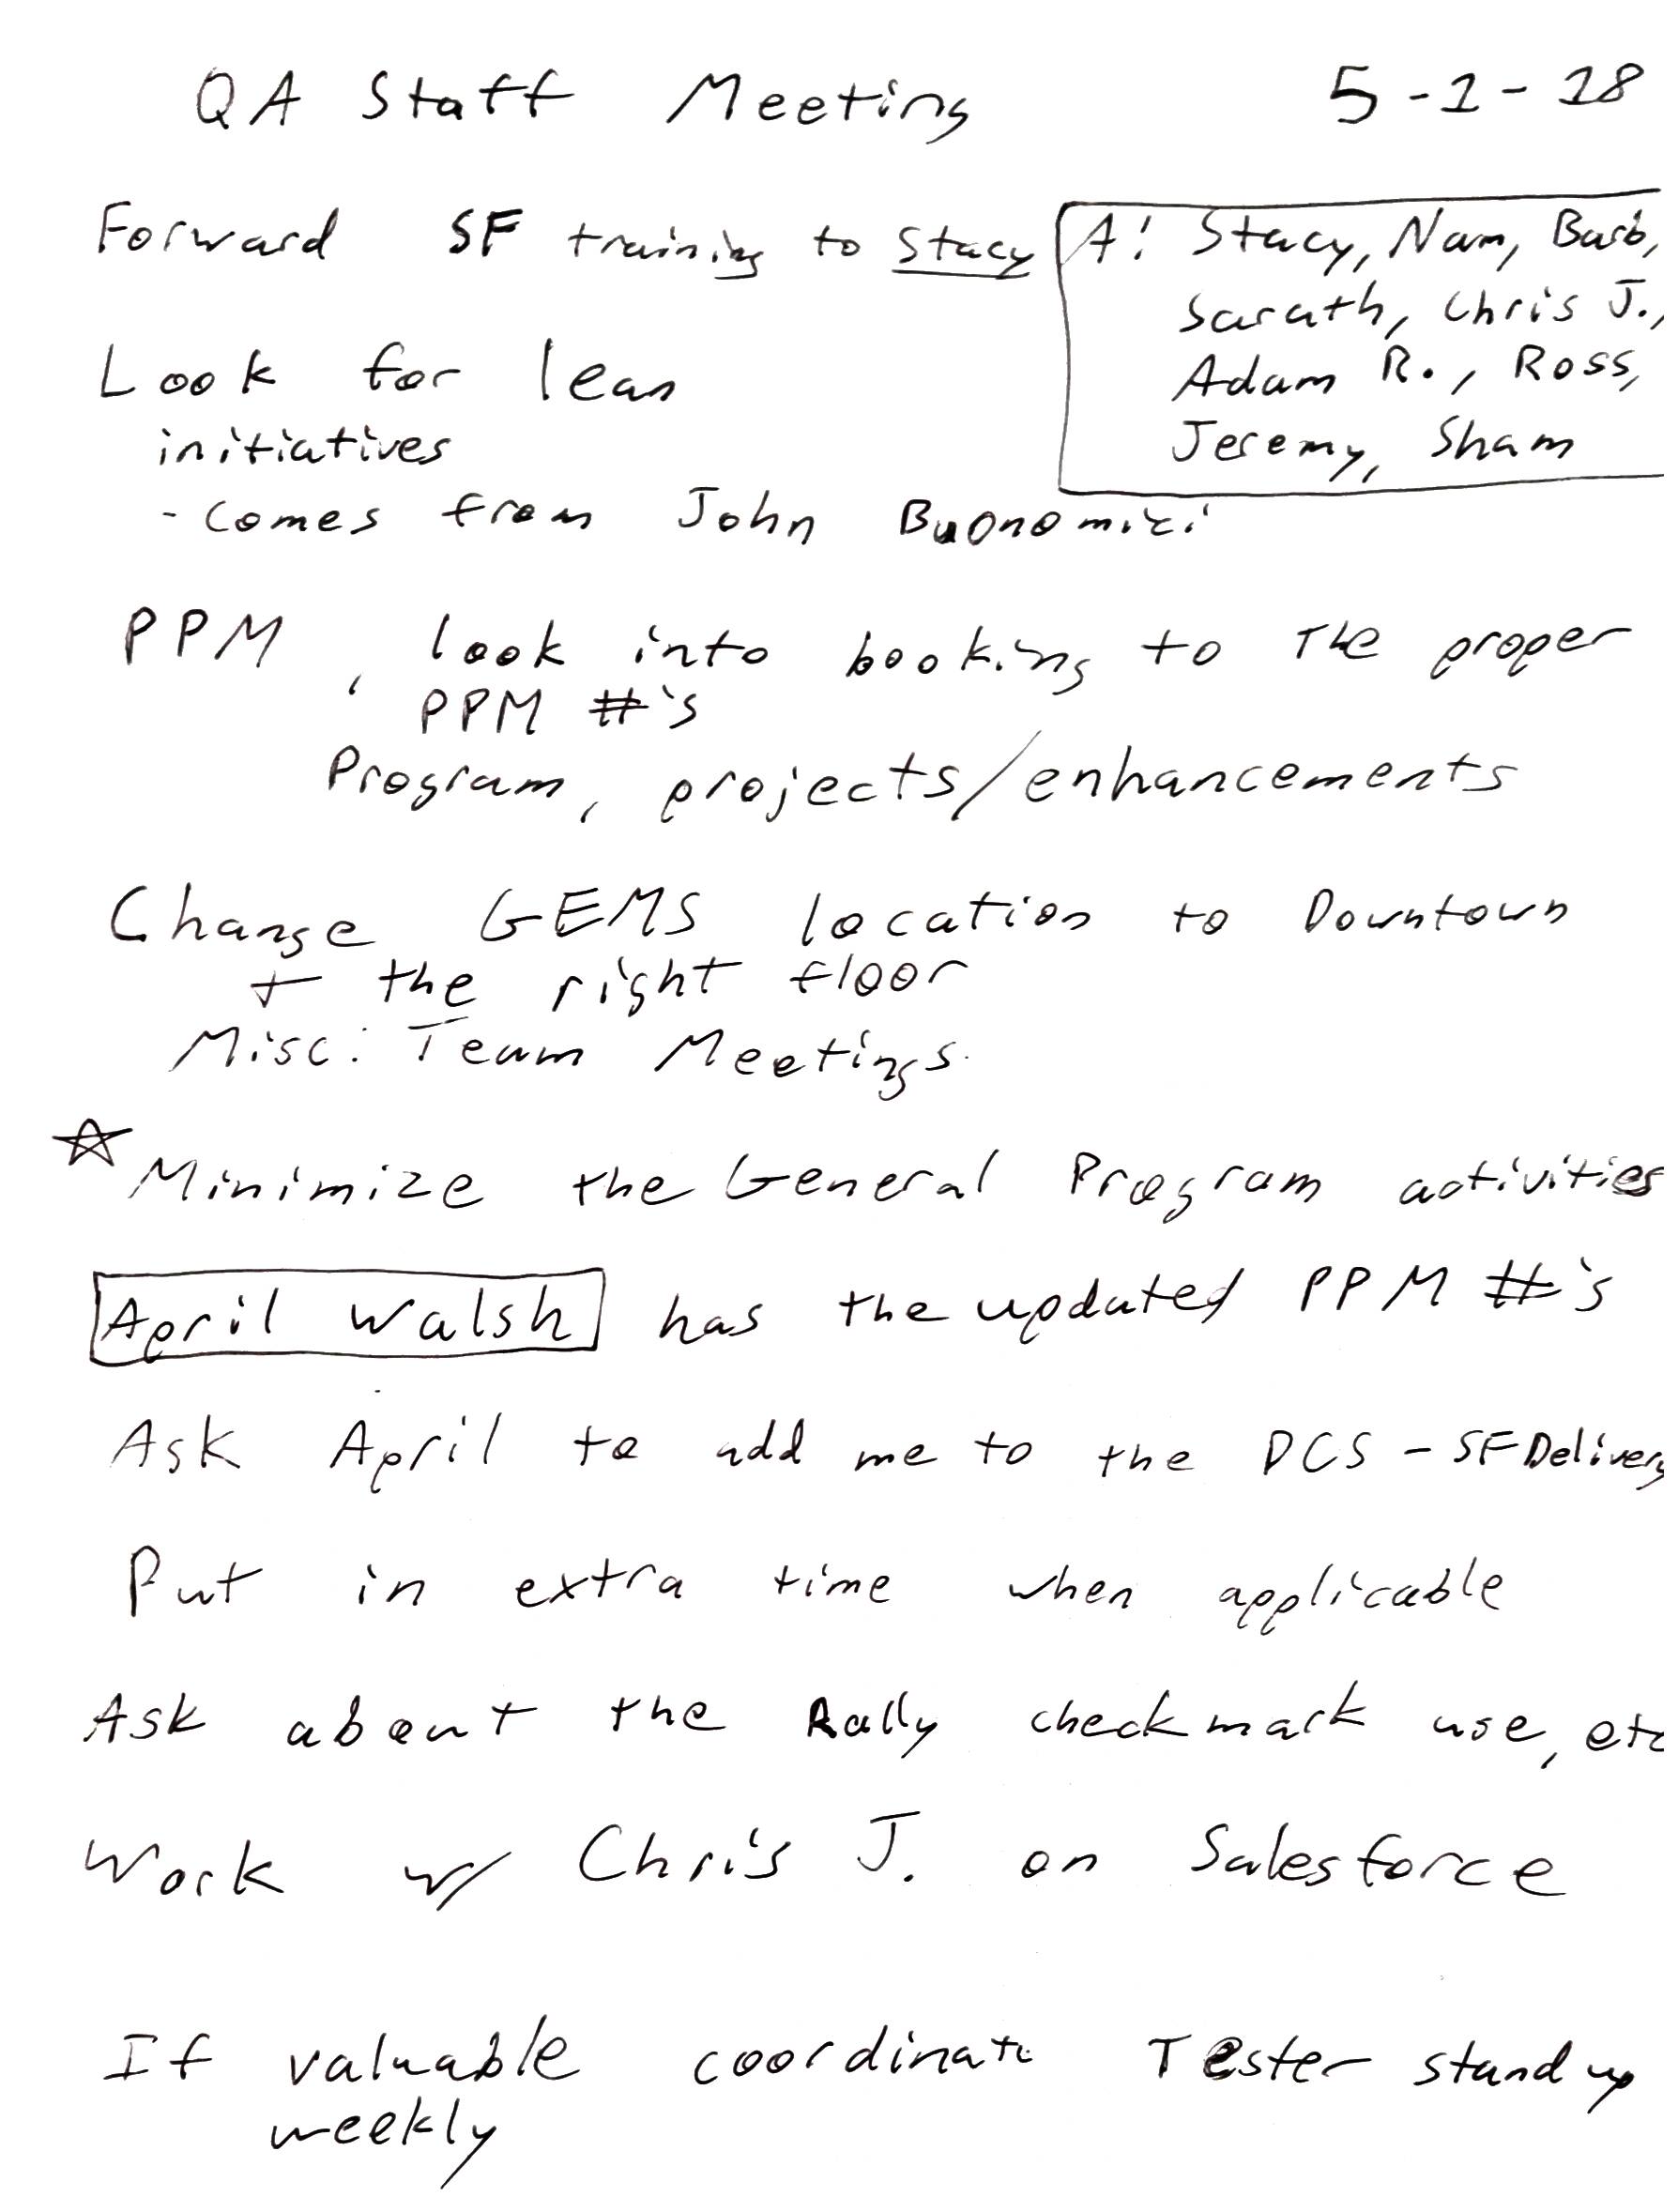 QA Staff Meeting 5-1-18
Forward SF training to Stacy
A: Stacy, Nam, Barb,
Sarath, Chris J.,
Adam R., Ross,
Jeremy, Sham
Look for lean
initiatives
- comes from John Buonomici
PPM, look into booking to the proper
PPM #'s
Program, projects/enhancements
Change GEMS location to Downtown
+ the right floor
Misc: Team Meetings.
☆ Minimize the General Program activities
April Walsh has the updated PPM #'s
Ask April to add me to the DCS - SF Delivery
Put in extra time when applicable
Ask about the Rally checkmark use, etc
Work w/ Chris J. on Salesforce
If valuable coordinate Tester stand up
weekly